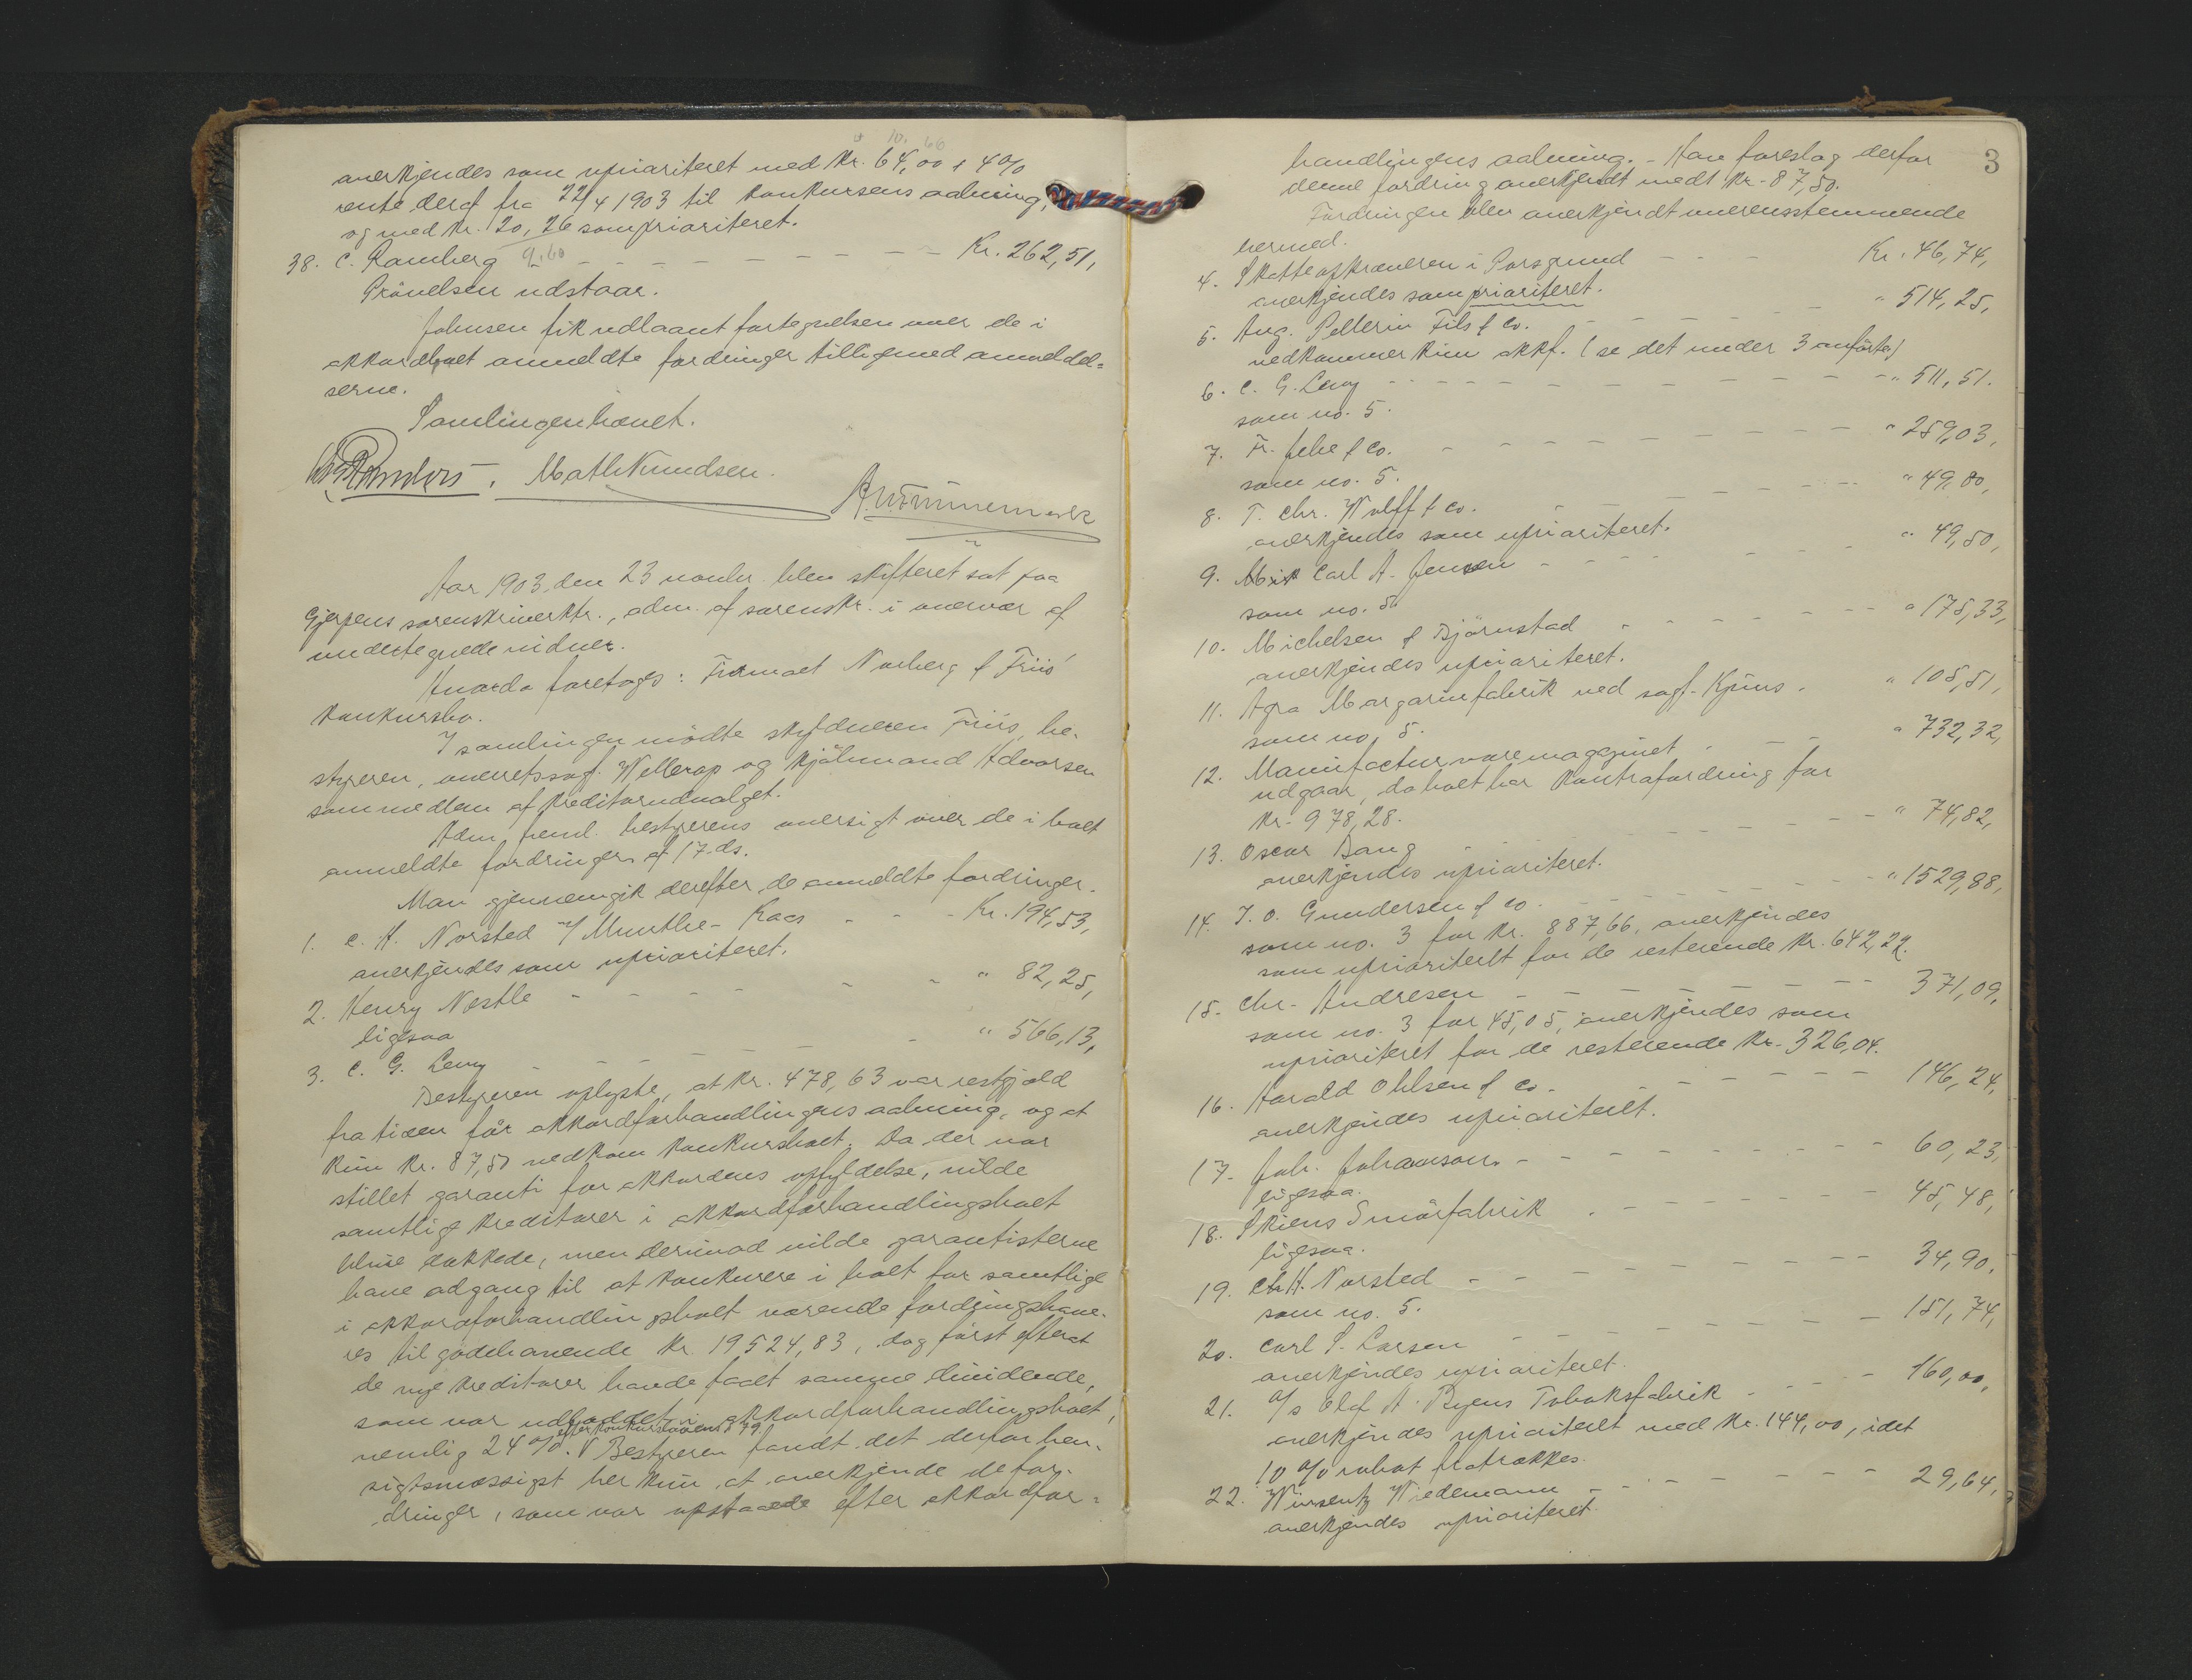 anerkjendes som uprioriteret med Kr. 64,00 + 4%
rente deraf fra 22/4 1903 til konkursens aabning,
og med Kr. 20,26 som prioriteret.
38. C. Ramberg - - - - - - - - Kr. 262,51,
Prövelsen udstaar.
Johnsen fik udlaant fortegnelsen over de i
akkordboet anmeldte fordringer tilligemed anmeldel=
serne.
Samlingen hævet.
Math Knudsen.
Aar 1903, den 23 novbr. blev skifteret sat paa
Gjerpens sorenskriverktr., adm. af sorenskr. i overvær af
undertegnede vidner.
Hvorda foretoges: Firmaet Norberg & Friis'
konkursbo.
I samlingen mödte skyldneren Friis, be-
styreren, overretssagf. Wellerop og kjöbmand Halvorsen
som medlem af kreditorudvalget.
Adm. freml. bestyrerens oversigt over de i boet
anmeldte fordringer af 17. ds.
Man gjennemgik derefter de anmeldte fordringer.
1. C. H. Norsted v/ Munthe-Kaas - - - Kr. 194,53,
anerkjendes som uprioriteret.
2. Henry Nestle - - - - - - " 82,25,
ligesaa
3. C. G. Levy - - - - - - " 566,13,
Bestyreren oplyste, at Kr. 478,63 var restgjæld
fra tiden för akkordforhandlingens aabning, og at
kun Kr. 87,50 vedkom konkursboet. Da der var
stillet garanti for akkordens opfyldelse, vilde
samtlige kreditorer i akkordforhandlingsboet
blive dækkede, men derimod vilde garantisterne
have adgang til at konkurere i boet for samtlige
i akkordforhandlingsboet værende fordringshave-
res tilgodehavende Kr. 19524,83, dog först efterat
de nye kreditorer havde faaet samme dividende,
som var udloddet i akkordforhandlingsboet,
nemlig 24 %. V efter konkurslovens § 99. Bestyreren fandt det derfor hen-
sigtsmæssigst her kun at anerkjende de for-
dringer, som var opstaaede efter akkordfor=
3
handlingens aabning. - Han foreslog derfor
denne fordring anerkjendt med Kr. 87,50.
Fordringen blev anerkjendt overensstemmende
hermed.
4. Skatteopkræveren i Porsgrund - - - Kr. 46,74,
anerkjendes som prioriteret.
5. Aug. Pellerin Fils & Co. - - - - - " 514,25,
vedkommer kun akkf. (se det under 3 anförte)
6. C. G. Levy - - - - - - - - " 511,51.
som no. 5.
7. Fr. Jebe & Co. - - - - - - - - " 259,03,
som no. 5.
8. T. Chr. Wulff & Co. - - - - - - " 49,80,
anerkjendes som uprioriteret.
9. Carl A. Jensen - - - - - " 49,50,
som no. 5.
10. Michelsen & Björnstad - - - - - " 175,33,
anerkjendes uprioriteret.
11. Agra Margarinfabrik ved sagf. Kjöns. " 105,51,
som no. 5.
12. Manufacturvaremagazinet - - - " 732,32,
udgaar, da boet har kontrafordring for
Kr. 978,28.
13. Oscar Bang - - - - - - - " 74,82,
anerkjendes uprioriteret.
14. J. O. Gundersen & Co. - - - - - " 1529,88,
som no. 3 for Kr. 887,66, anerkjendes
som uprioriteret for de resterende Kr. 642,22.
15. Chr. Andresen - - - - - - - 371,09,
som no. 3 for 45,05, anerkjendes som
uprioriteret for de resterende Kr. 326,04.
16. Harald Ohlsen & Co. - - - - - - 146,24,
anerkjendes uprioriteret.
17. Joh. Johannson - - - - - - - - 60,23,
ligesaa.
18. Skiens Smörfabrik - - - - - - - 45,48,
ligesaa.
19. C. H. Norsted - - - - - - - - 34,90,
som no. 5.
20. Carl S. Larsen - - - - - - - 151,74,
anerkjendes uprioriteret.
21. A/s Olaf A. Byens Tobaksfabrik - - - - 160,00,
anerkjendes uprioriteret med Kr. 144,00, idet
10 % rabat fratrækkes.
22. Wiedemann - - - - - - 29,64,
anerkjendes uprioriteret.